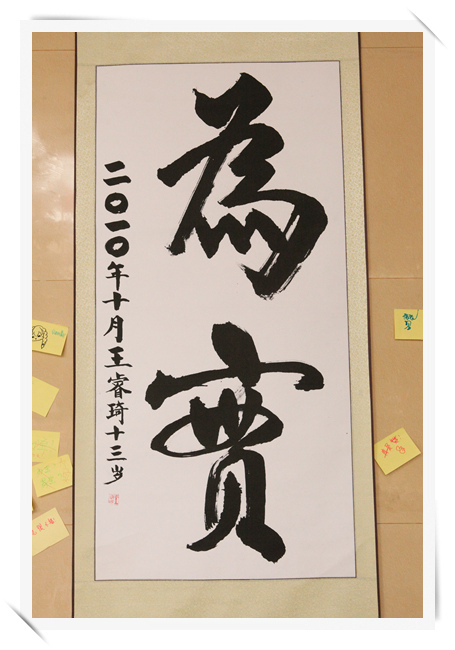 為實
二〇一〇年十月王睿琦十三岁